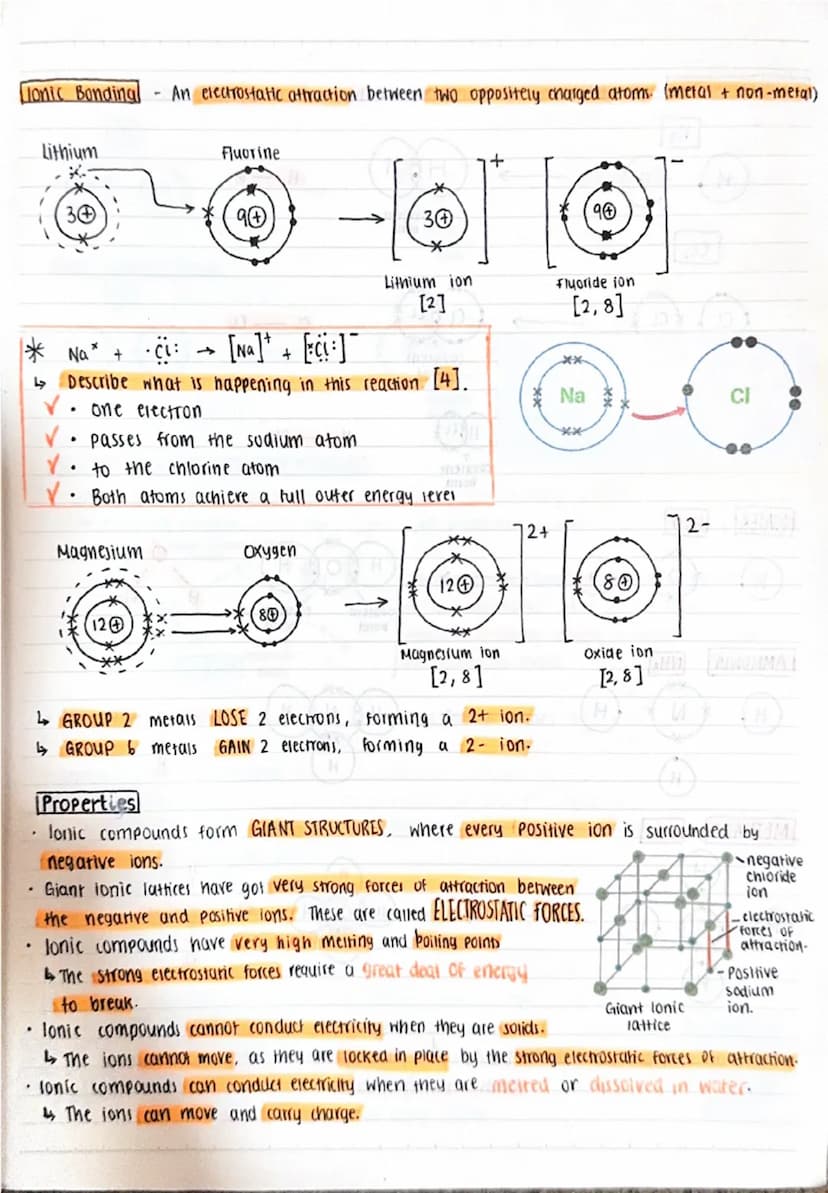 Ionic Bonding - An electrostatic attraction between two oppositely charged atoms. (metal + non-metal)
Lithium Fluorine
3+ 9+ → [3+]+ [9+]-
Lithium ion Fluoride ion
[2] [2, 8]
* Naˣ + ·C̈l: → [Na]⁺ + [ˣC̈l:]⁻
↳ Describe what is happening in this reaction [4].
✓ · one electron
✓ · passes from the sodium atom
✓ · to the chlorine atom
✓ · Both atoms achieve a full outer energy level
Na Cl
Magnesium Oxygen
12+ 8+ → [12+]2+ [8+]2-
Magnesium ion Oxide ion
[2, 8] [2, 8]
↳ GROUP 2 metals LOSE 2 electrons, forming a 2+ ion.
↳ GROUP 6 metals GAIN 2 electrons, forming a 2- ion.
Properties
· Ionic compounds form GIANT STRUCTURES, where every positive ion is surrounded by
negative ions.
· Giant ionic lattices have got very strong forces of attraction between
the negative and positive ions. These are called ELECTROSTATIC FORCES.
· Ionic compounds have very high melting and boiling points
↳ The strong electrostatic forces require a great deal of energy
to break.
negative
chloride
ion
electrostatic
forces of
attraction.
Positive
sodium
ion.
Giant Ionic
lattice
· Ionic compounds cannot conduct electricity when they are solids.
↳ The ions cannot move, as they are locked in place by the strong electrostatic forces of attraction.
· Ionic compounds can conduct electricity when they are melted or dissolved in water.
↳ The ions can move and carry charge.